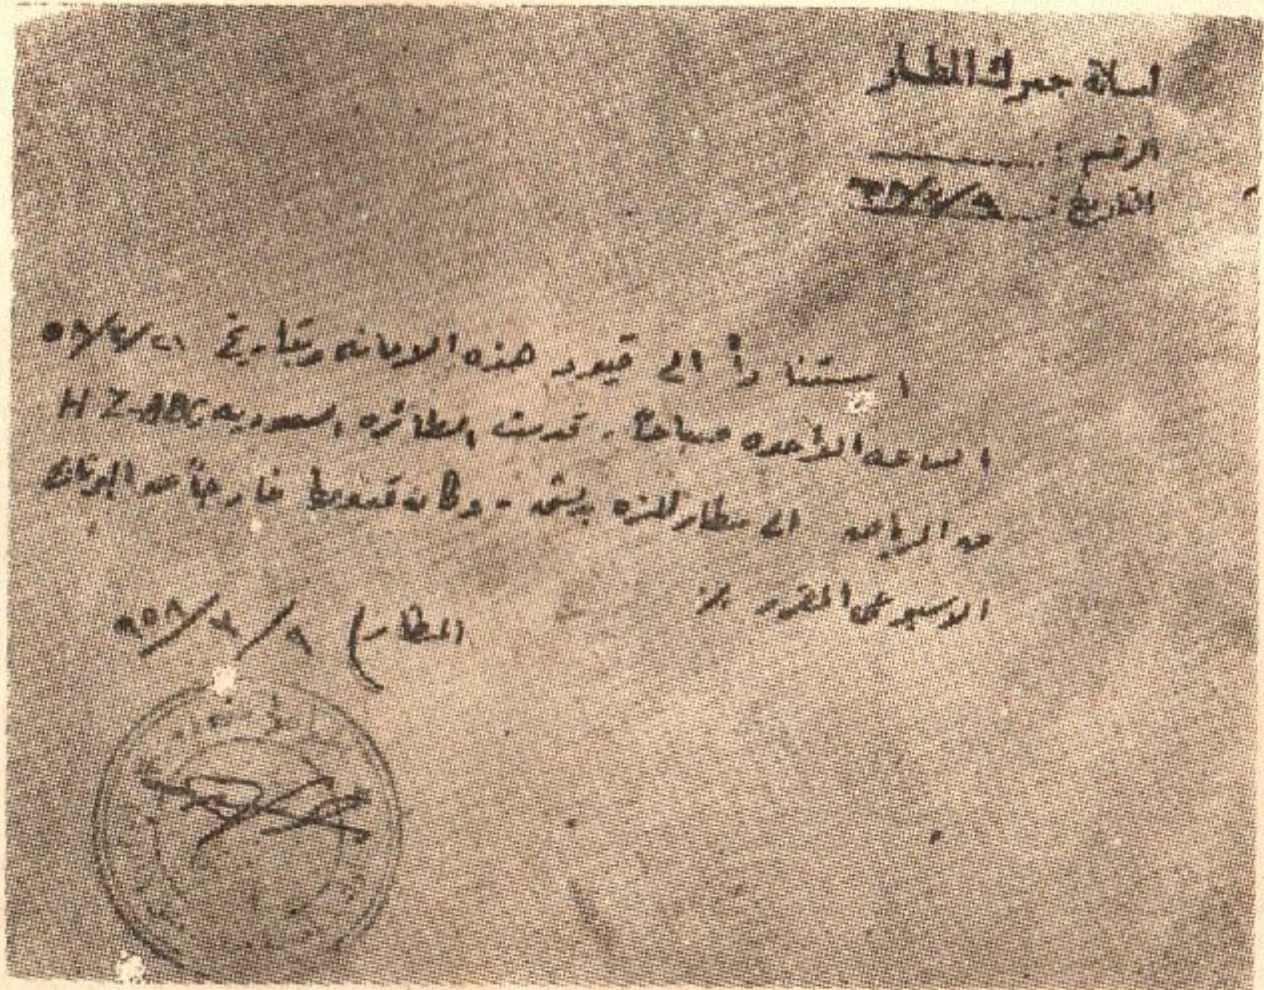 امانة جمرك المطار
الرقم :
التاريخ : ٥٨/٣/٩
استناداً الى قيود هذه الامانه وبتاريخ ٥٨/٢/٢١
الساعه الواحده صباحاً . قدمت الطائره السعوديه HZ-ABC
من الرياض الى مطار المزه بدمشق - وكان قدومها خارجاً عن البرنامج
الاسبوعي المقرر ٪
المطار ٩٥٨/٣/٩